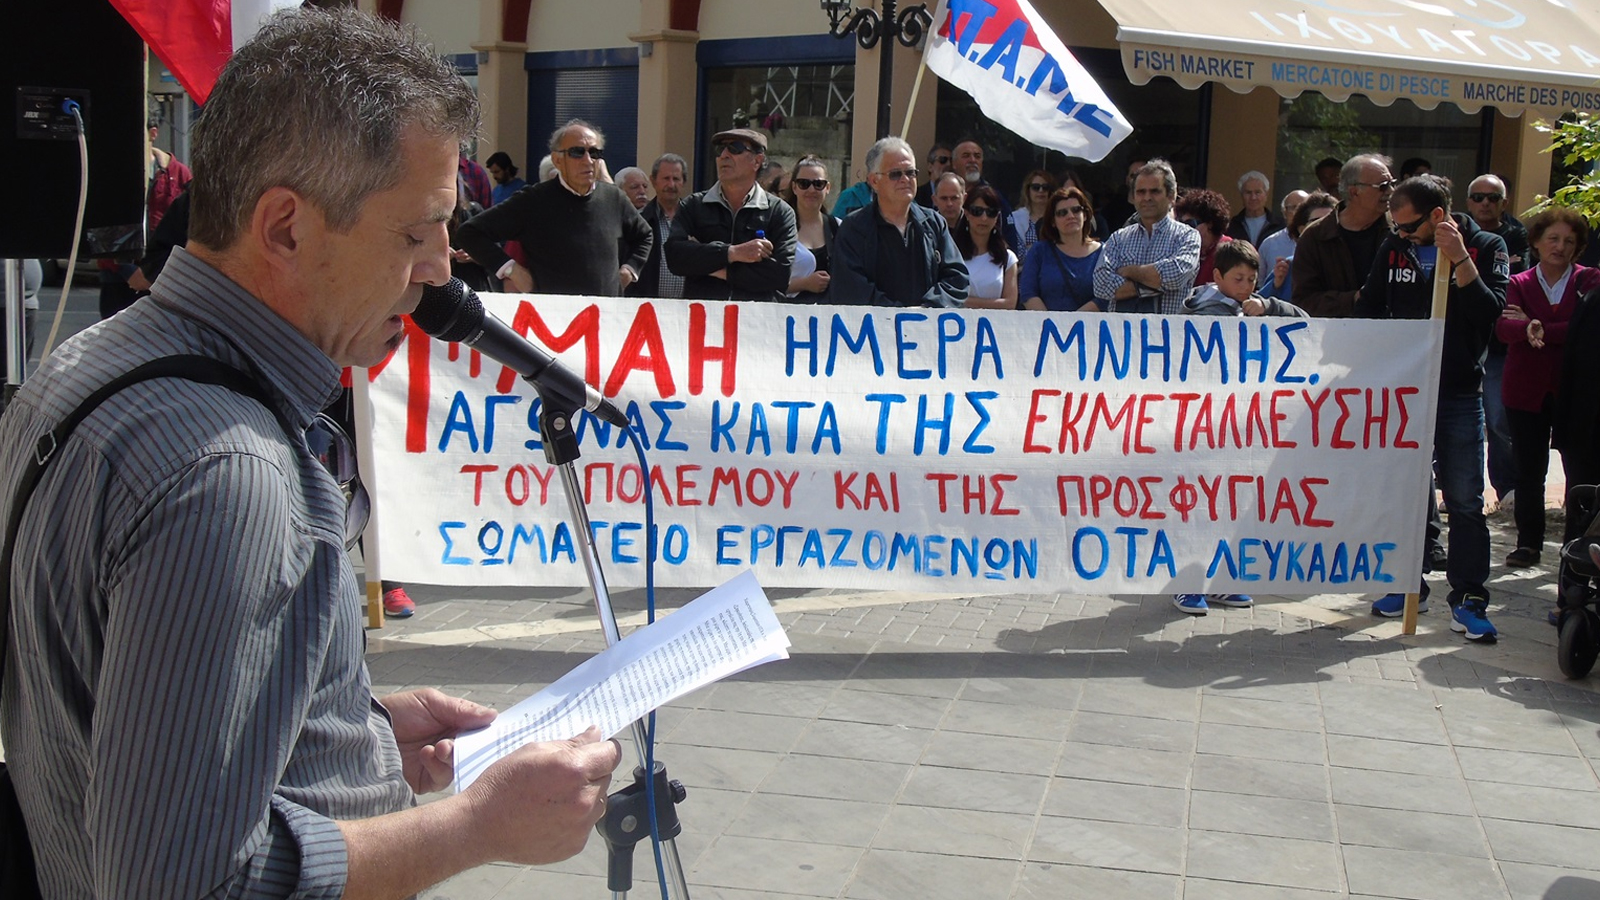 Π.Α.ΜΕ
ΙΧΘΥΑΓΟΡΑ
FISH MARKET MERCATONE DI PESCE MARCHÉ DES POISS
1η ΜΑΗ ΗΜΕΡΑ ΜΝΗΜΗΣ.
ΑΓΩΝΑΣ ΚΑΤΑ ΤΗΣ ΕΚΜΕΤΑΛΛΕΥΣΗΣ
ΤΟΥ ΠΟΛΕΜΟΥ ΚΑΙ ΤΗΣ ΠΡΟΣΦΥΓΙΑΣ
ΣΩΜΑΤΕΙΟ ΕΡΓΑΖΟΜΕΝΩΝ ΟΤΑ ΛΕΥΚΑΔΑΣ